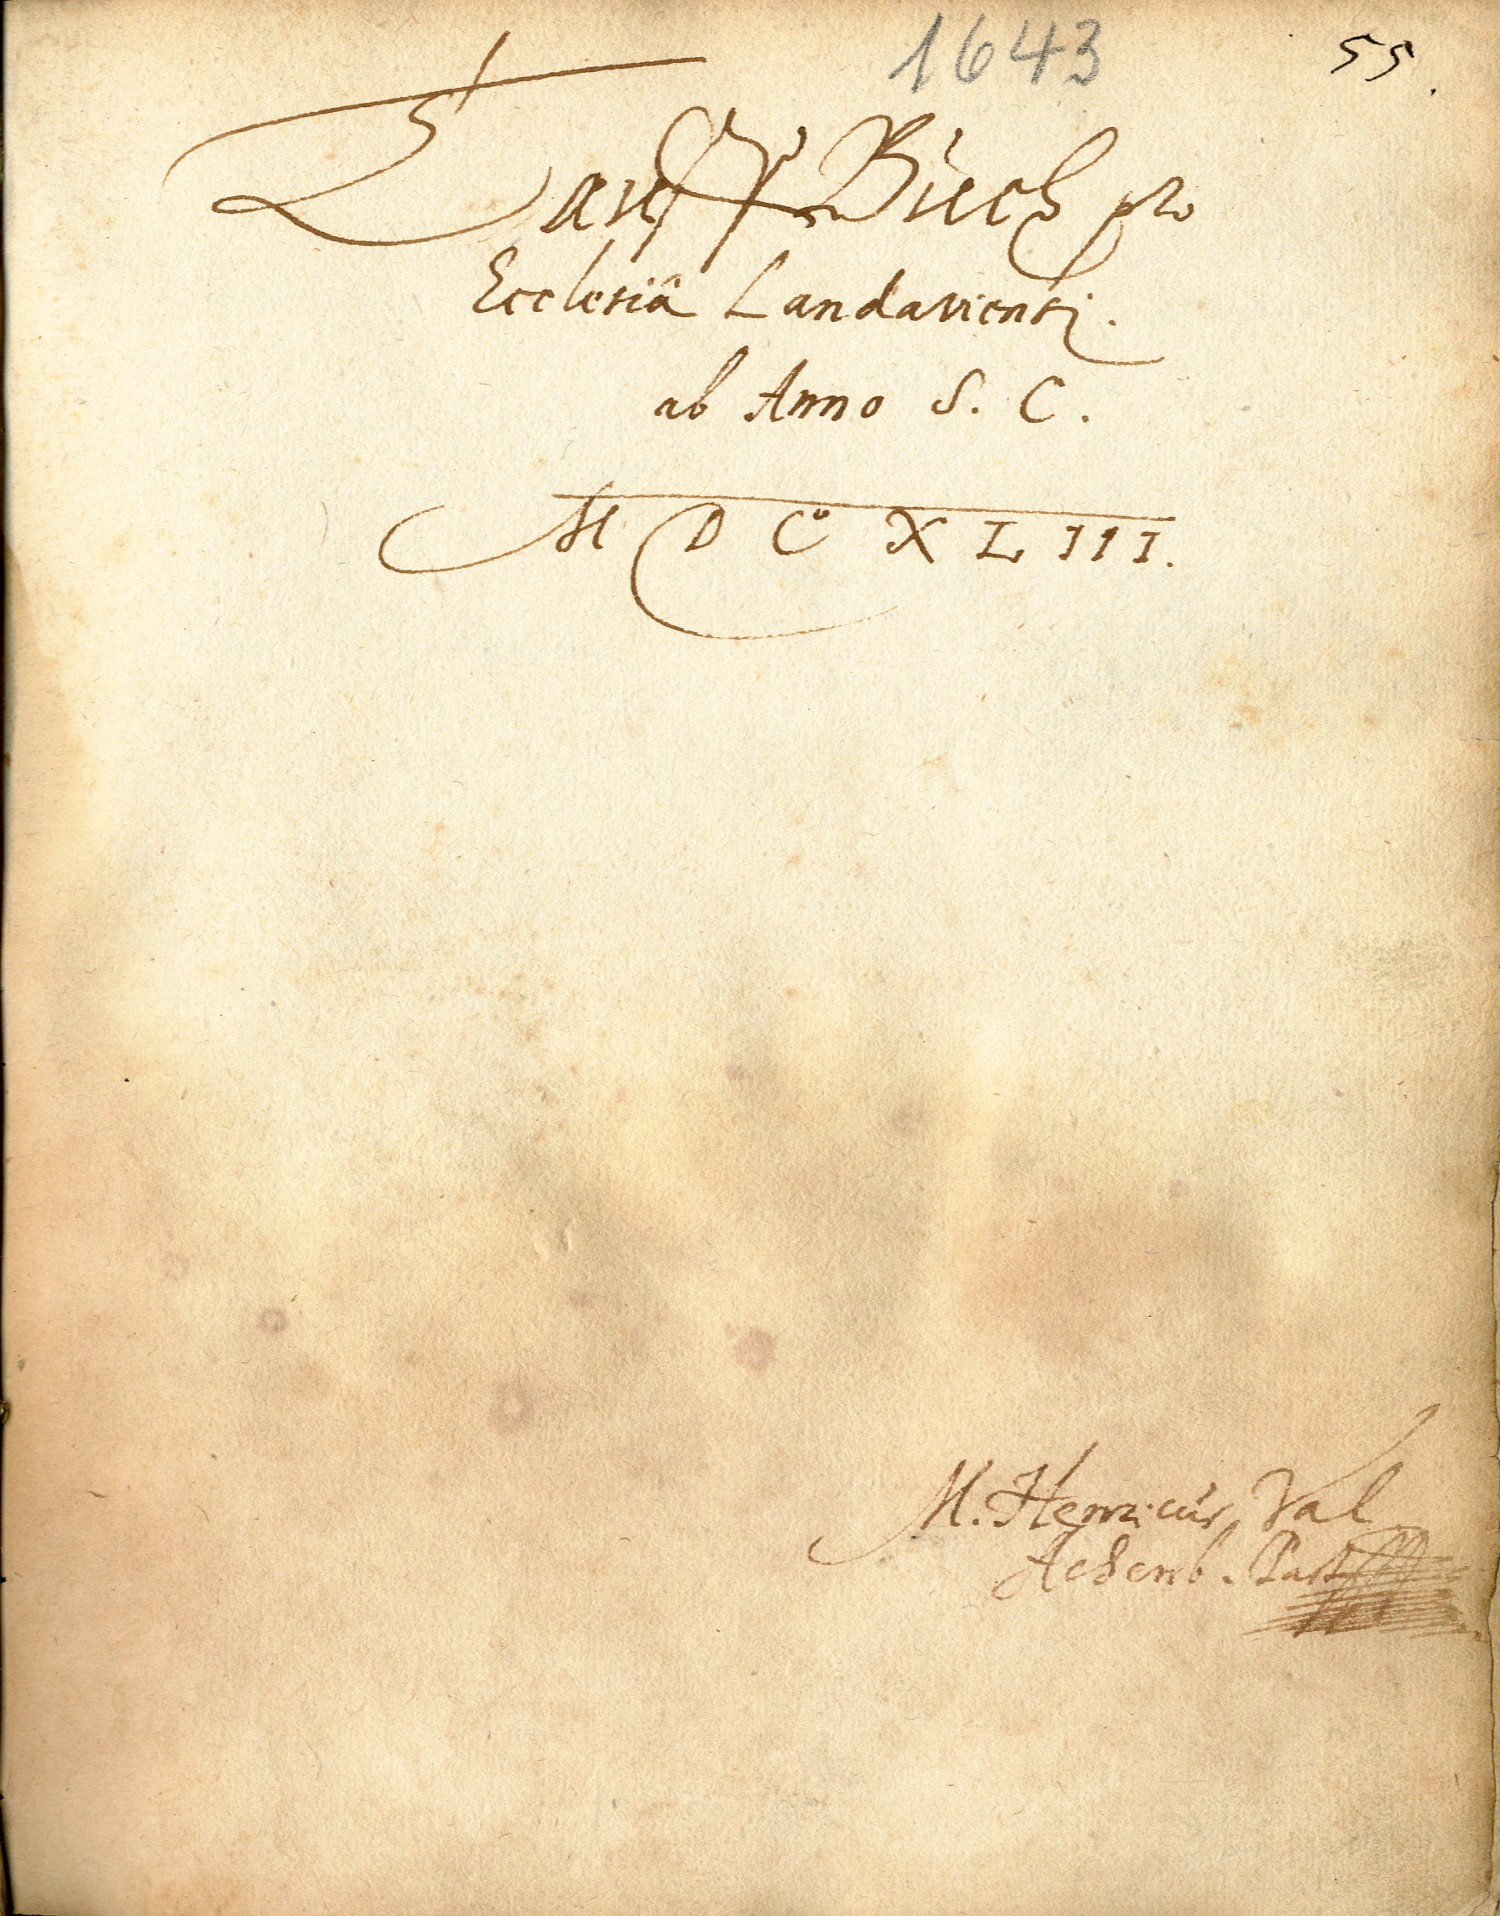 1643
55.
Tauff Buech pro
Ecclesiâ Landaviensi.
ab Anno S. C.
M D C° X L I I I.
M. Henricus Val
Achenb. Past